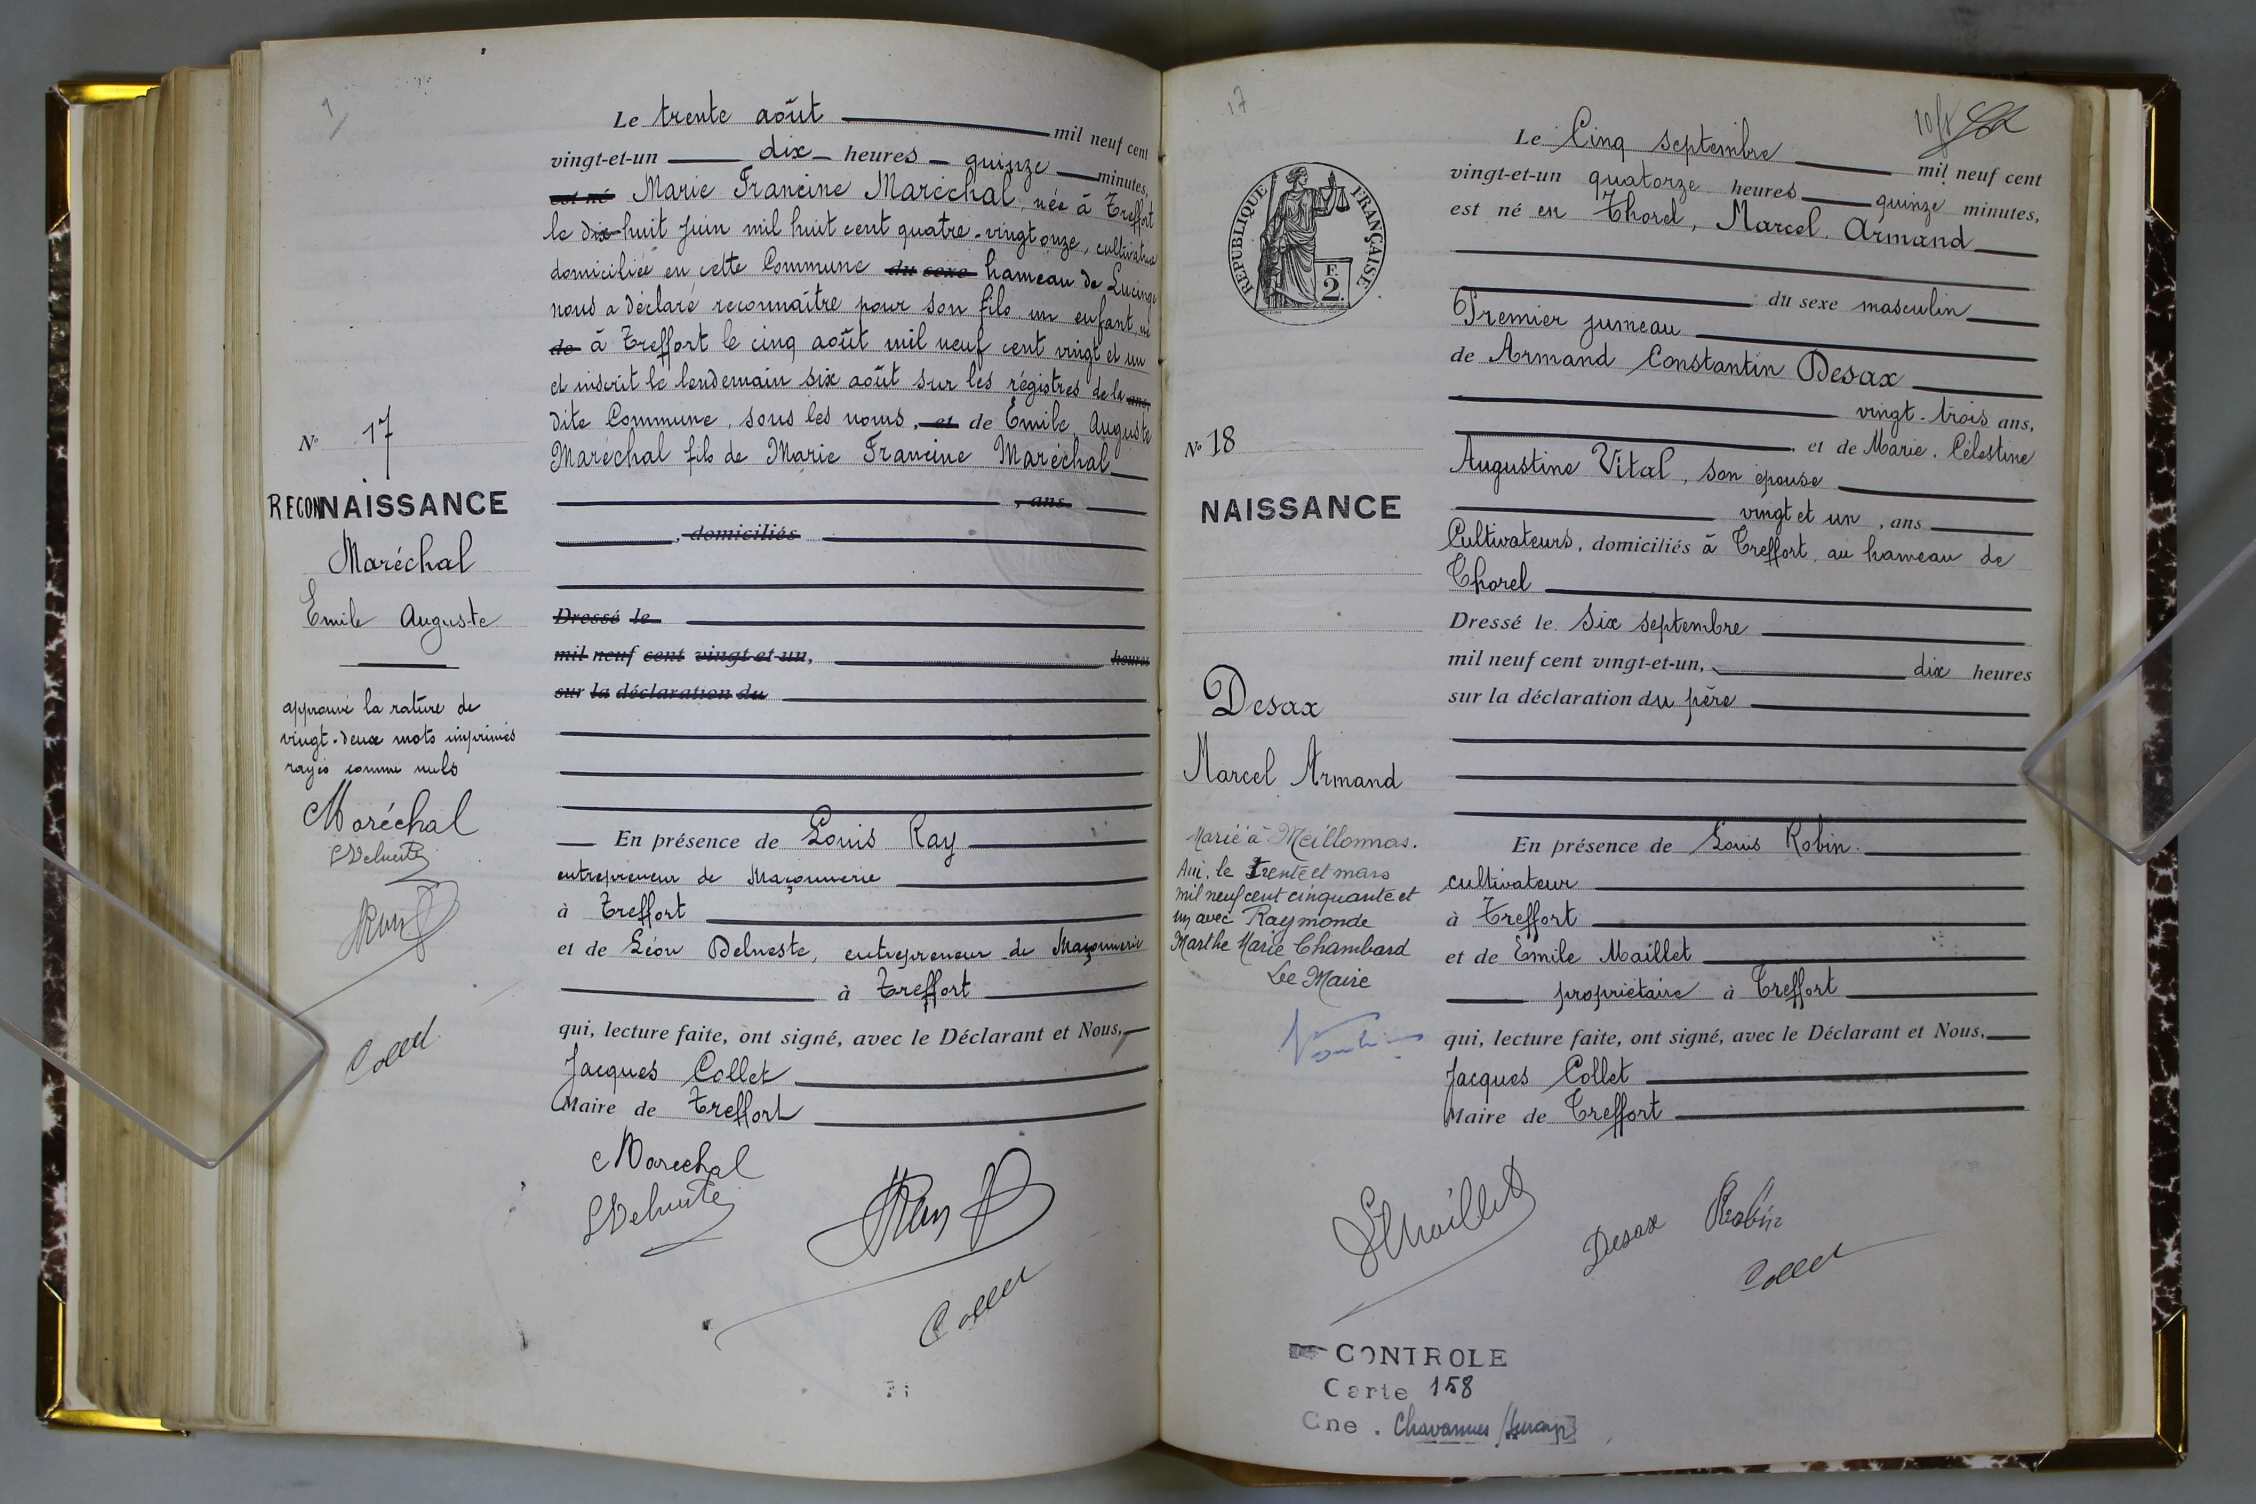 1
Le trente août mil neuf cent
vingt-et-un dix heures quinze minutes,
est né Marie Francine Maréchal, née à Treffort
le dix-huit Juin mil huit cent quatre-vingt onze, cultivatrice
domiciliée en cette Commune du sexe hameau de Lucinge
nous a déclaré reconnaître pour son fils un enfant, né
de à Treffort le cinq août mil neuf cent vingt et un
et inscrit le lendemain six août sur les régistres de la ans,
dite Commune, sous les noms, et de Emile, Auguste
Maréchal fils de Marie Francine Maréchal
, ans
, domiciliés
Dressé le
mil neuf cent vingt-et-un, heures
sur la déclaration du
En présence de Louis Ray
entrepreneur de Maçonnerie
à Treffort
et de Léon Delneste, entrepreneur de Maçonnerie
à Treffort
qui, lecture faite, ont signé, avec le Déclarant et Nous,
Jacques Collet
Maire de Treffort
Maréchal
LDelneste
Ray
Collet
N° 17
RECONNAISSANCE
Maréchal
Emile Auguste
approuvé la rature de
vingt-deux mots imprimés
rayés comme nuls
Maréchal
LDelneste
Ray
Collet
17
10 fs
Le Cinq septembre mil neuf cent
vingt-et-un quatorze heures quinze minutes,
est né en Thorel, Marcel. Armand
du sexe masculin
Premier jumeau
de Armand Constantin Desax
vingt-trois ans,
, et de Marie. Célestine
Augustine Vital, son épouse
vingt et un , ans
Cultivateurs, domiciliés à Treffort, au hameau de
Thorel
Dressé le six septembre
mil neuf cent vingt-et-un, dix heures
sur la déclaration du père
En présence de Louis Robin.
cultivateur
à Treffort
et de Emile Maillet
propriétaire à Treffort
qui, lecture faite, ont signé, avec le Déclarant et Nous,
Jacques Collet
Maire de Treffort
REPUBLIQUE FRANÇAISE
F.
2
N° 18
NAISSANCE
Desax
Marcel Armand
Marié à Meillonnas.
Ain, le trente et mars
mil neuf cent cinquante et
un avec Raymonde
Marthe Marie Chambard
Le Maire
EMaillet
Desax
Robin
Collet
CONTROLE
Carte 158
Cne . Chavannes /Suran